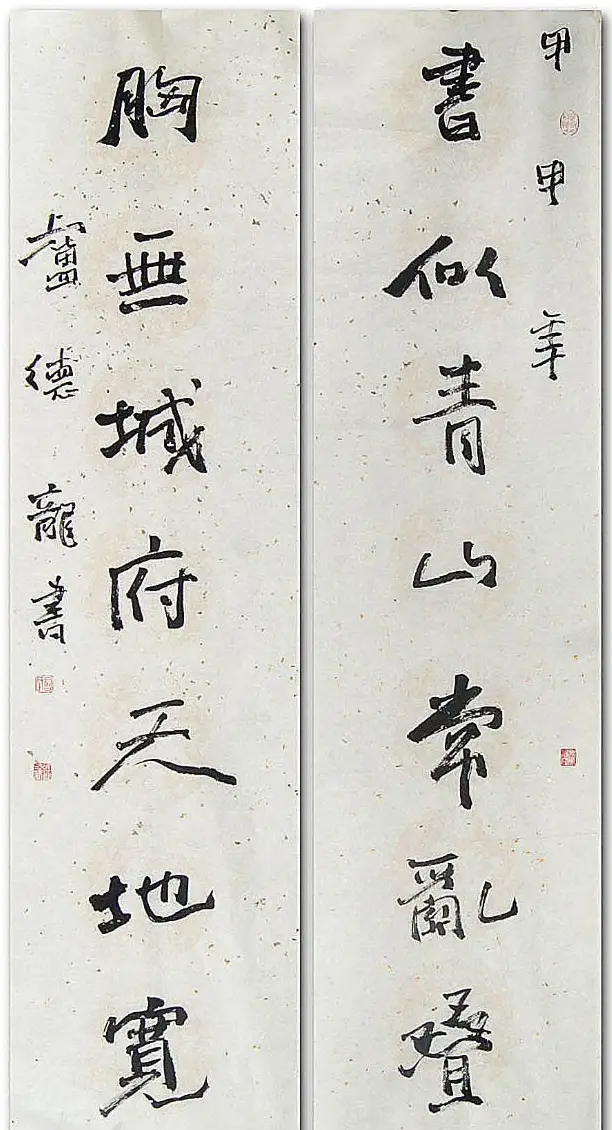 甲申年
書似青山常亂疊
胸無城府天地寬
盧德龍書